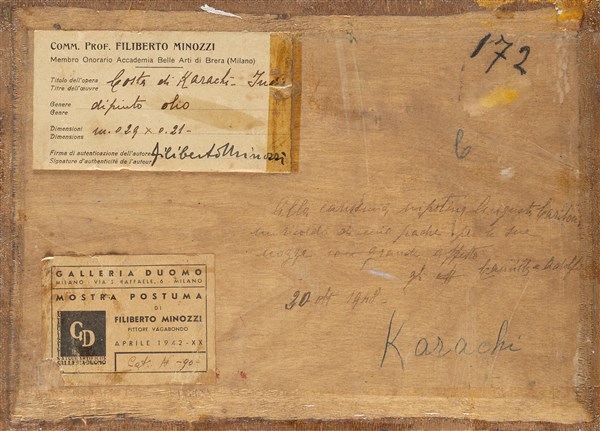 COMM. PROF. FILIBERTO MINOZZI
Membro Onorario Accademia Belle Arti di Brera (Milano)
Titolo dell'opera
Titre dell'œuvre
Costa di Karachi - Indi
Genere
Genre
dipinto olio
Dimensioni
Dimensione
m. 0.29 x 0.21 -
Firma di autenticazione dell'autore
Signature d'authenticité de l'auteur
Filiberto Minozzi
172
6
Alla carissima nipotina
in ricordo di suo padre per le sue
nozze con grande affetto
gli
20 ott 1948
Karachi
GALLERIA DUOMO
MILANO - VIA S. RAFFAELE, 6 - MILANO
MOSTRA POSTUMA
DI
FILIBERTO MINOZZI
PITTORE VAGABONDO
APRILE 1942-XX
GD
Cat N -90-